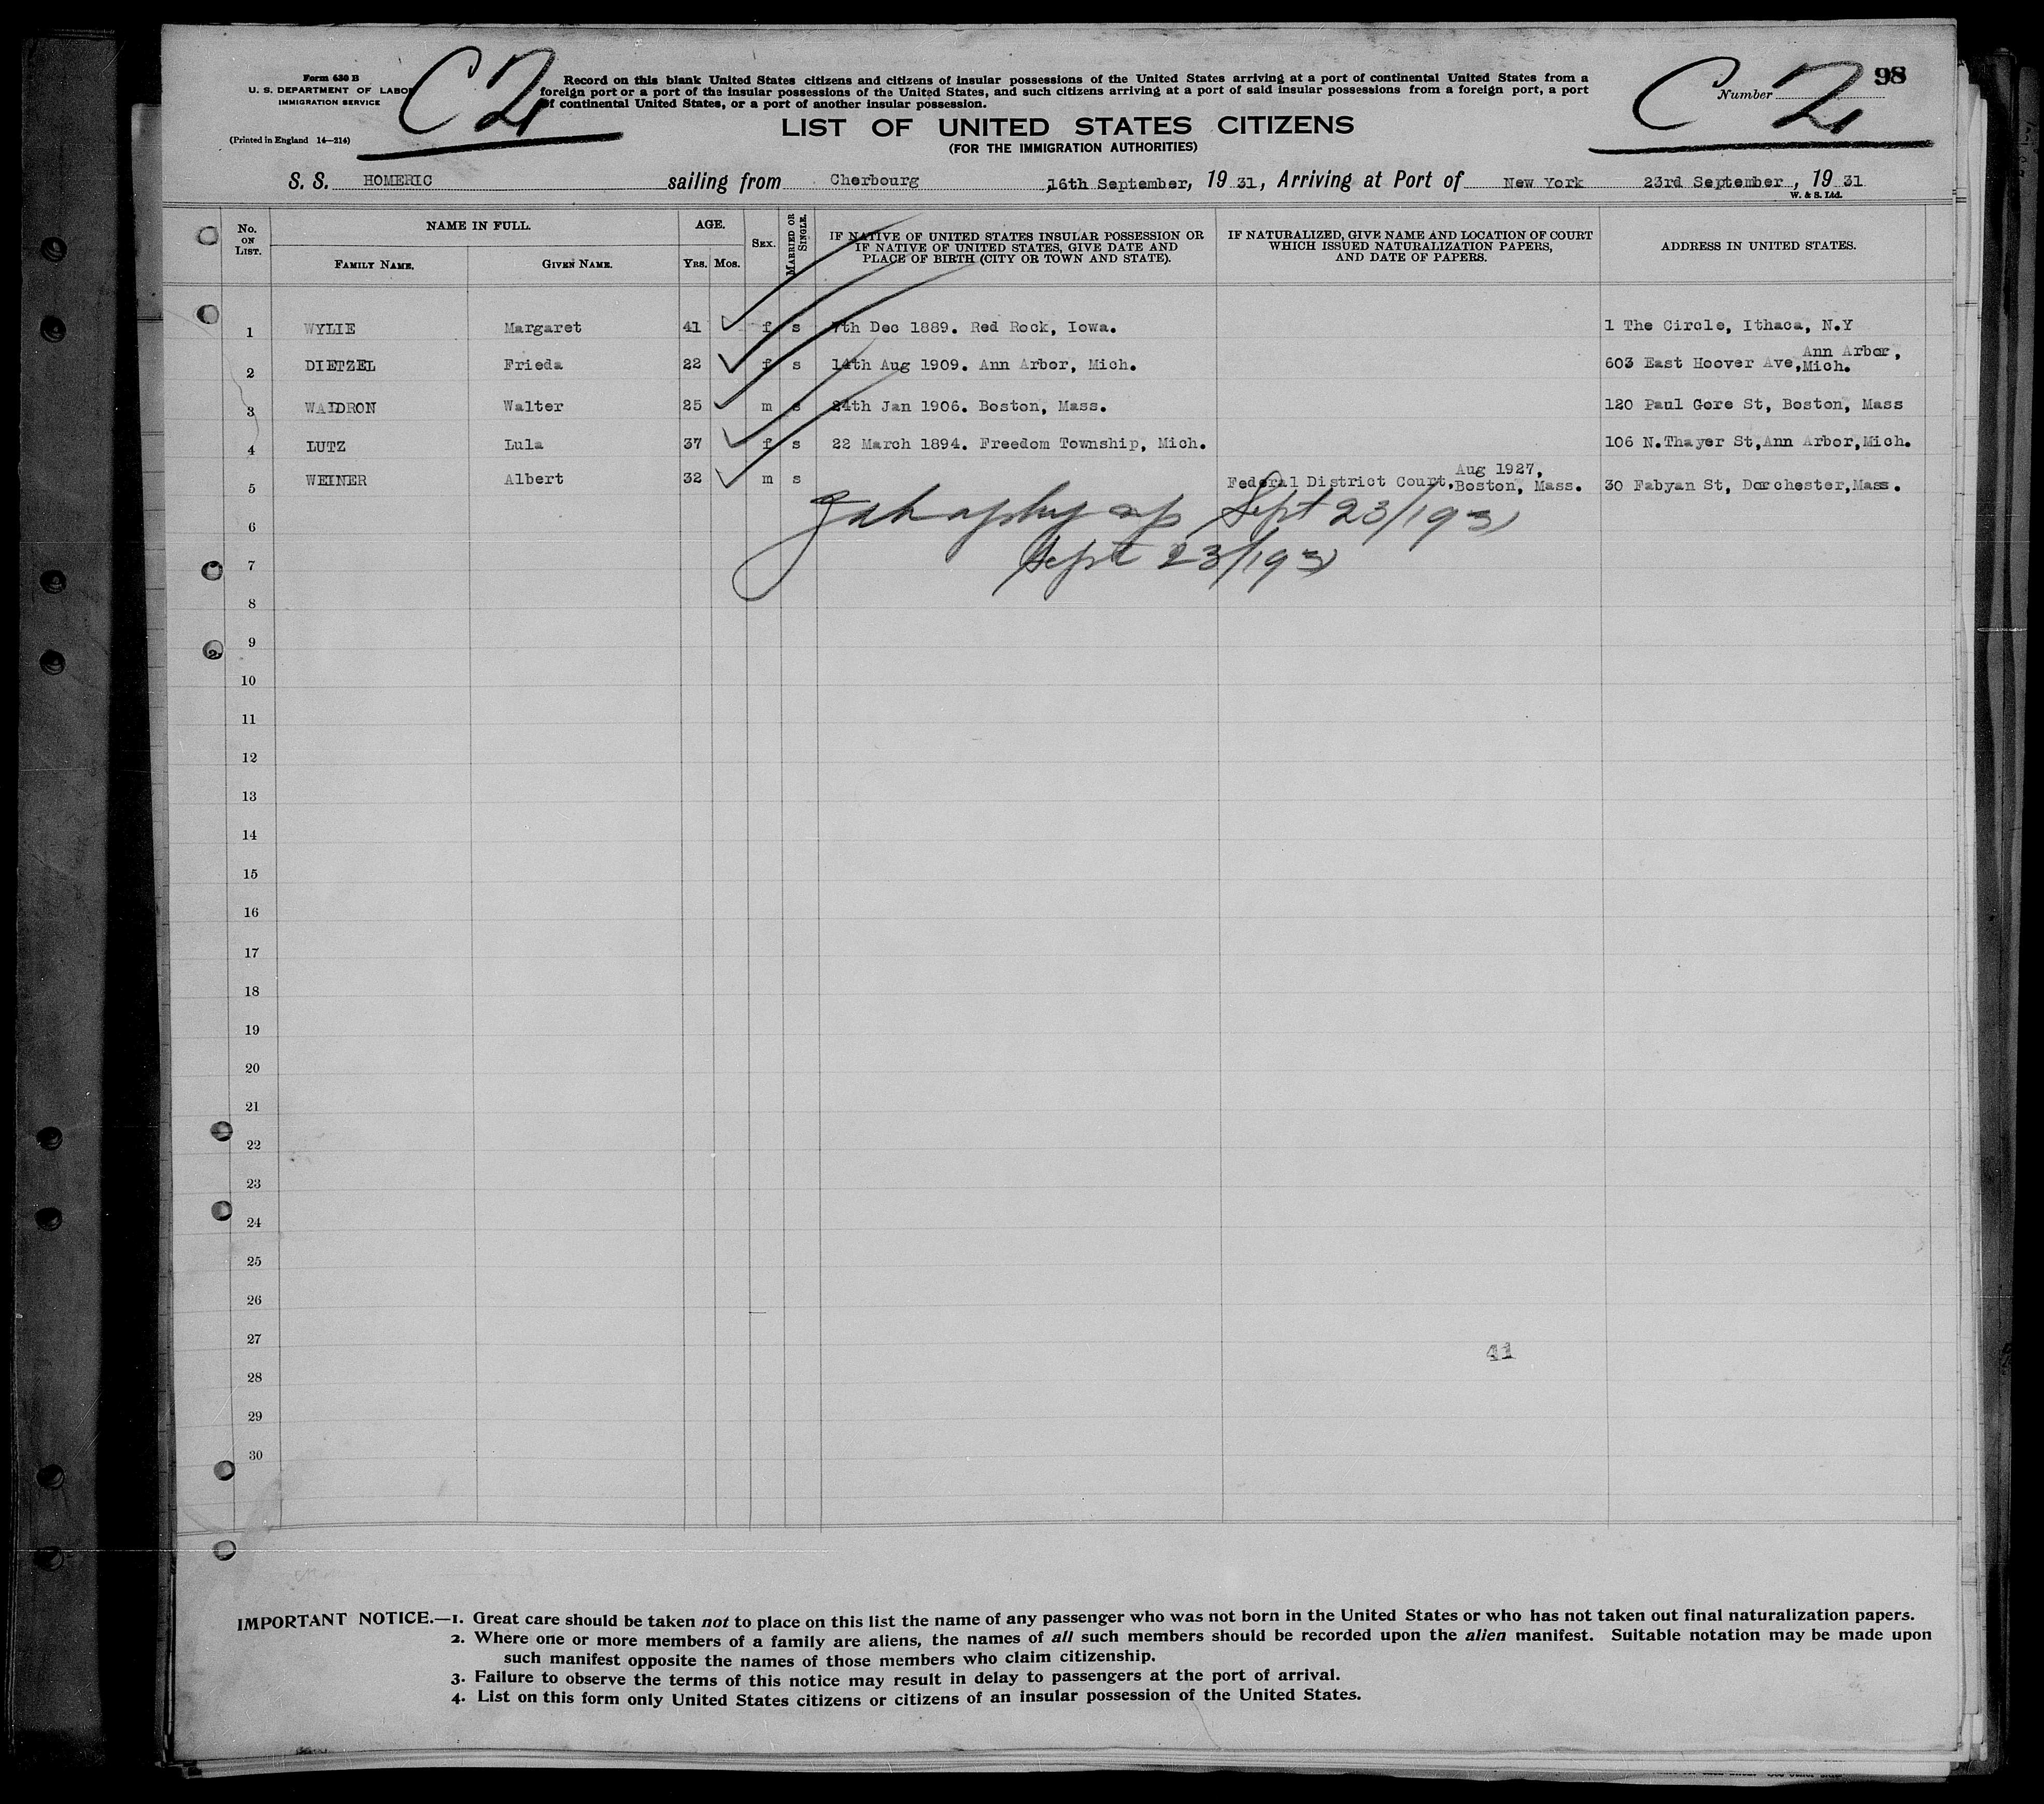 Form 630 B
U. S. DEPARTMENT OF LABOR
IMMIGRATION SERVICE
(Printed in England 14—214)
C 2
Record on this blank United States citizens and citizens of insular possessions of the United States arriving at a port of continental United States from a
foreign port or a port of the insular possessions of the United States, and such citizens arriving at a port of said insular possessions from a foreign port, a port
of continental United States, or a port of another insular possession.
LIST OF UNITED STATES CITIZENS
(FOR THE IMMIGRATION AUTHORITIES)
Number
98
C 2
S. S. HOMERIC sailing from Cherbourg ,16th September, 19 31, Arriving at Port of New York 23rd September, 19 31
W. & S. Ltd.
No. ON LIST.
NAME IN FULL.
FAMILY NAME. GIVEN NAME.
AGE.
YRS. MOS.
SEX.
MARRIED OR SINGLE.
IF NATIVE OF UNITED STATES INSULAR POSSESSION OR
IF NATIVE OF UNITED STATES, GIVE DATE AND
PLACE OF BIRTH (CITY OR TOWN AND STATE).
IF NATURALIZED, GIVE NAME AND LOCATION OF COURT
WHICH ISSUED NATURALIZATION PAPERS,
AND DATE OF PAPERS.
ADDRESS IN UNITED STATES.
1 WYLIE Margaret 41 f s 7th Dec 1889. Red Rock, Iowa. 1 The Circle, Ithaca, N.Y
2 DIETZEL Frieda 22 f s 14th Aug 1909. Ann Arbor, Mich. 603 East Hoover Ave, Ann Arbor, Mich.
3 WAIDRON Walter 25 m s 24th Jan 1906. Boston, Mass. 120 Paul Gore St, Boston, Mass
4 LUTZ Lula 37 f s 22 March 1894. Freedom Township, Mich. 106 N.Thayer St,Ann Arbor,Mich.
5 WEINER Albert 32 m s Federal District Court, Aug 1927, Boston, Mass. 30 Fabyan St, Dorchester,Mass.
Sept 23/1931
6
Sept 23/1931
7
8
9
2
10
11
12
13
14
15
16
17
18
19
20
21
22
23
24
25
26
27
41
28
29
30
IMPORTANT NOTICE.—1. Great care should be taken not to place on this list the name of any passenger who was not born in the United States or who has not taken out final naturalization papers.
2. Where one or more members of a family are aliens, the names of all such members should be recorded upon the alien manifest. Suitable notation may be made upon
such manifest opposite the names of those members who claim citizenship.
3. Failure to observe the terms of this notice may result in delay to passengers at the port of arrival.
4. List on this form only United States citizens or citizens of an insular possession of the United States.